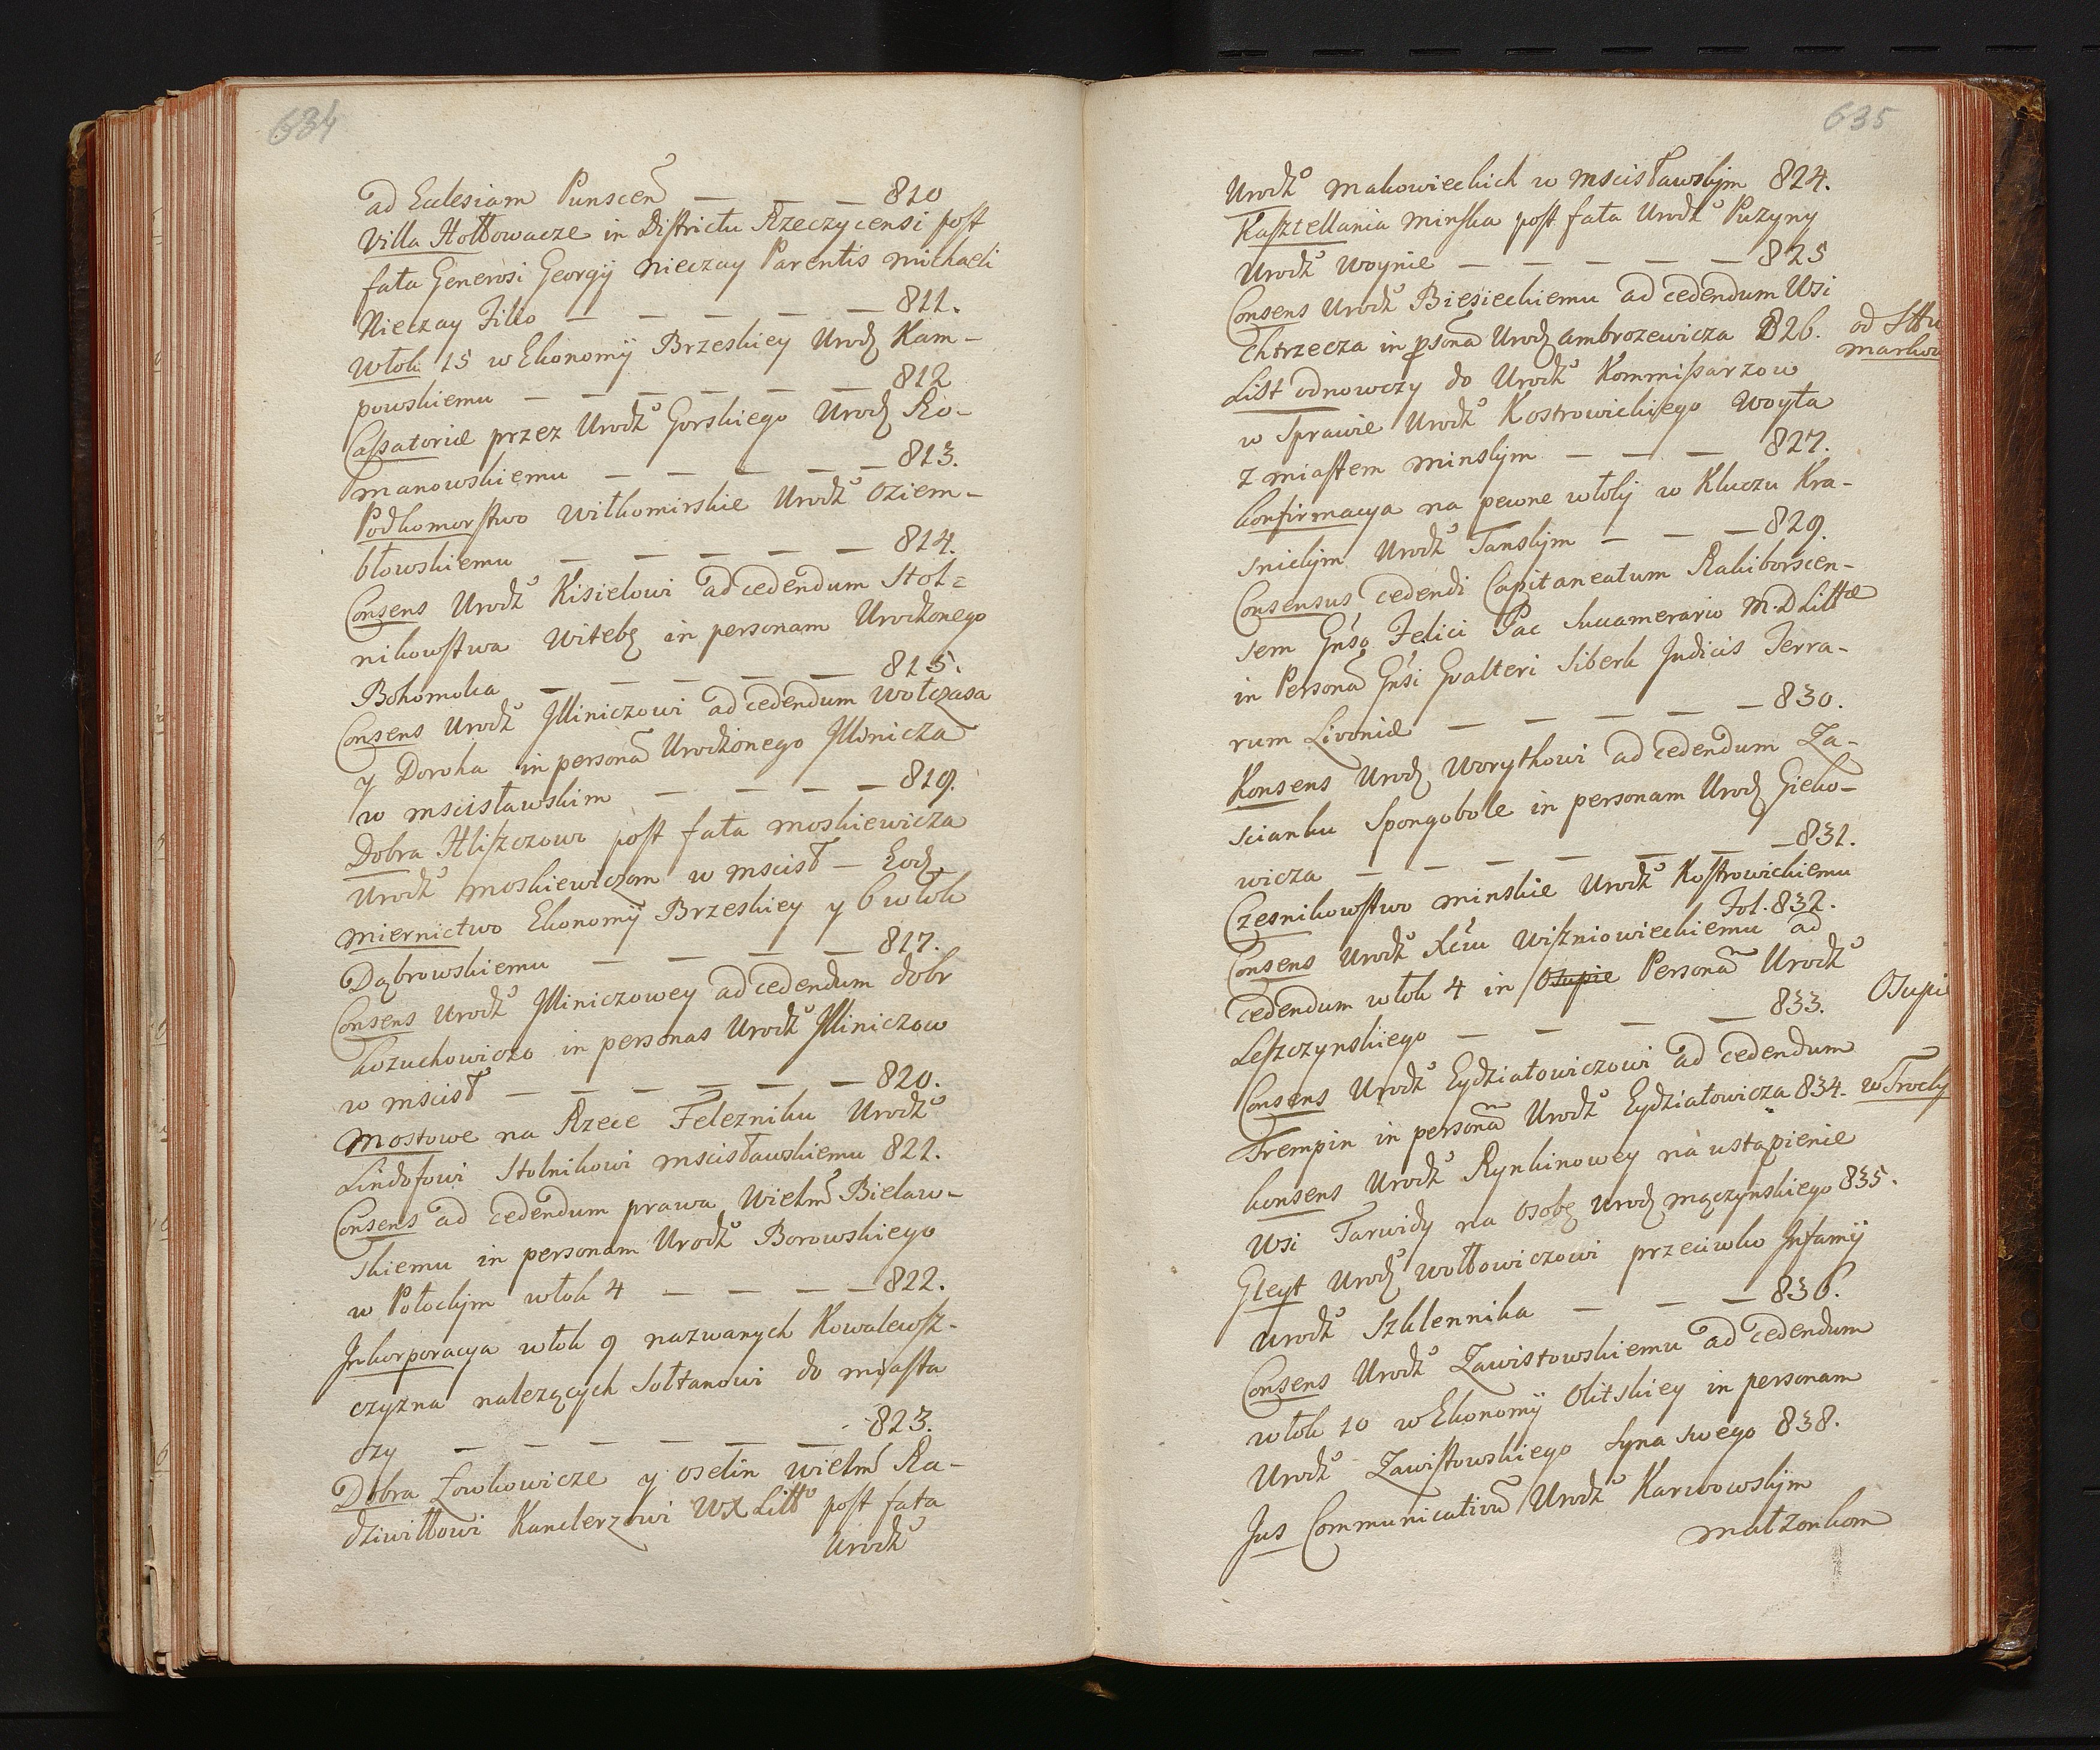 634
ad Eclesiam Punscen̄ — — — 810
Villa Hołłowacze in Districtu Rzeczycensi post
fata Generosi Georgij Nieczay Parentis Michaeli
Nieczay Filio — — — — — 811.
Włok 15 w Ekonomij Brzeskiey Urodz Kam-
powskiemu — — — — — — 812
Cassatoriæ przez Urodzo Gorskiego Urodz Ro-
manowskiemu — — — — — 813.
Podkomorstwo Wiłkomirskie Urodzo Oziem-
błowskiemu — — — — — 814.
Consens Urodzo Kisielowi ad cedendum Stol=
nikowstwa Witebs in personam Urodzonego
Bohomolca — — — — — 815.
Consens Urodzo Jlliniczowi ad cedendum Wołczasa
y Doroha in personā Urodzonego Jllinicza
w Mscisławskim — — — — 819.
Dobra Hliszczowo post fata Moskiewicza
Urodzo Moskiewiczom w Mscisł — Eod
Miernictwo Ekonomij Brzeskiey y 6 włok
Dąbrowskiemu — — — — — 817.
Consens Urodzo Jlliniczowey ad cedendum dobr
Kozuchowiczo in personas Urodzo Jlliniczow
w Mscisł — — — — — — 820.
Mostowe na Rzece Zelezniku Urodzo
Lindofowi Stolnikowi Mscisławskiemu 821.
Consens ad cedendum prawa Wielmo Bielaw-
skiemu in personam Urodzo Borowskiego
w Połockjm włok 4 — — — — 822.
Jnkorporacya włok 9 nazwanych Kowalewsz-
czyzna nalezących Sołtanowi do miasta
Ozy — — — — — — 823.
Dobra Łowkowicze y Oselin Wielmo Ra-
dziwiłłowi Kanclerzowi WX Litto post fata
Urodzo
635
Urodzo Makowieckich w Mscisławskjm 824.
Kasztellania Minska post fata Urodzo Puzyny
Urodzo Woynie — — — — — 825
Consens Urodzo Biesieckiemu ad cedendum Wsi
Chtrzecza in psonā Urodz Ambrozewicza 826. od
List odnowczy do Urodzo Kommissarzow
w Sprawie Urodzo Kostrowickiego Woyta
z miastem Minskjm — — — 827.
Konfirmacya na pewne włokj w Kluczu Kra-
snickjm Urodzo Tanskjm — — — 829.
Consensus cedendi Capitaneatum Rakiborscen-
sem Gnso Felici Pac Succamerario M. D Littæ
in Personā Gnsi Gvalteri Siberk Judicis Terra-
rum Livoniæ — — — — — 830.
Konsens Urodz Worytkowi ad cedendum Za-
scianku Spongobole in personam Urodz Gieko-
wicza — — — — — — — 831.
Czesnikowstwo Minskie Urodzo Kostrowickiemu
Fol. 832.
Consens Urodzo Xciu Wiszniowieckiemu ad
cedendum włok 4 in Osupie Personā Urodzo
Leszczynskiego — — — — 833. Osupie
Consens Urodzo Eydziatowiczowi ad cedendum
Trempin in personā Urodzo Eydziatowicza 834. w Trockj
Konsens Urodzo Rynkinowey na ustąpienie
Wsi Tarwidy na Osobę Urodz Mączynskiego 835.
Gleyt Urodz Wołłowiczowi przeciwko Jnfamij
Urodzo Szklennika — — — 836.
Consens Urodzo Zawistowskiemu ad cedendum
włok 10 w Ekonomij Olitskiey in personam
Urodzo Zawistowskiego Syna Swego 838.
Jus Communicativū Urodzo Karwowskjm
małzonkom